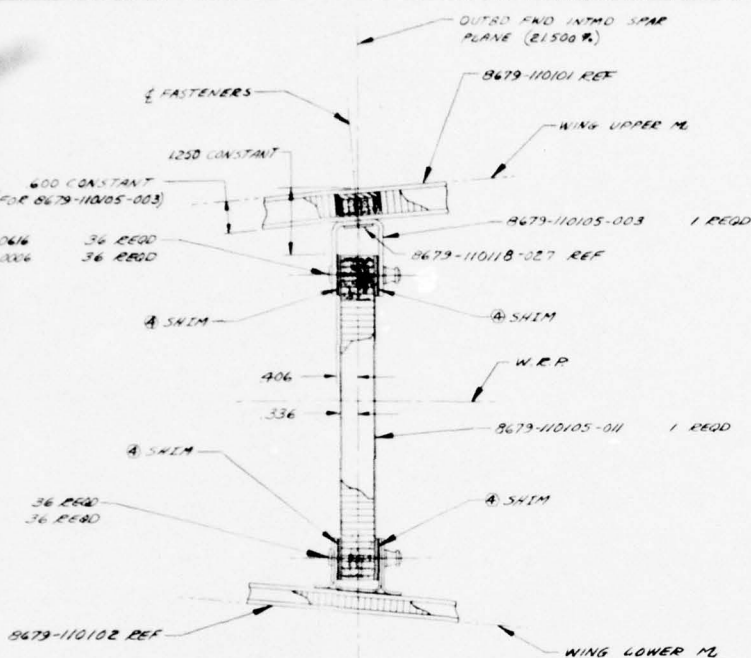 OUTBD FWD INTMD SPAR
PLANE (21.500 %)
8679-110101 REF
℄ FASTENERS
WING UPPER ML
1.250 CONSTANT
.600 CONSTANT
FOR 8679-110105-003)
8679-110105-003 1 REQD
0616 36 REQD
0006 36 REQD
8679-110118-027 REF
④ SHIM
④ SHIM
W.R.P.
.406
.336
8679-110105-011 1 REQD
④ SHIM
④ SHIM
36 REQD
36 REQD
8679-110102 REF
WING LOWER ML